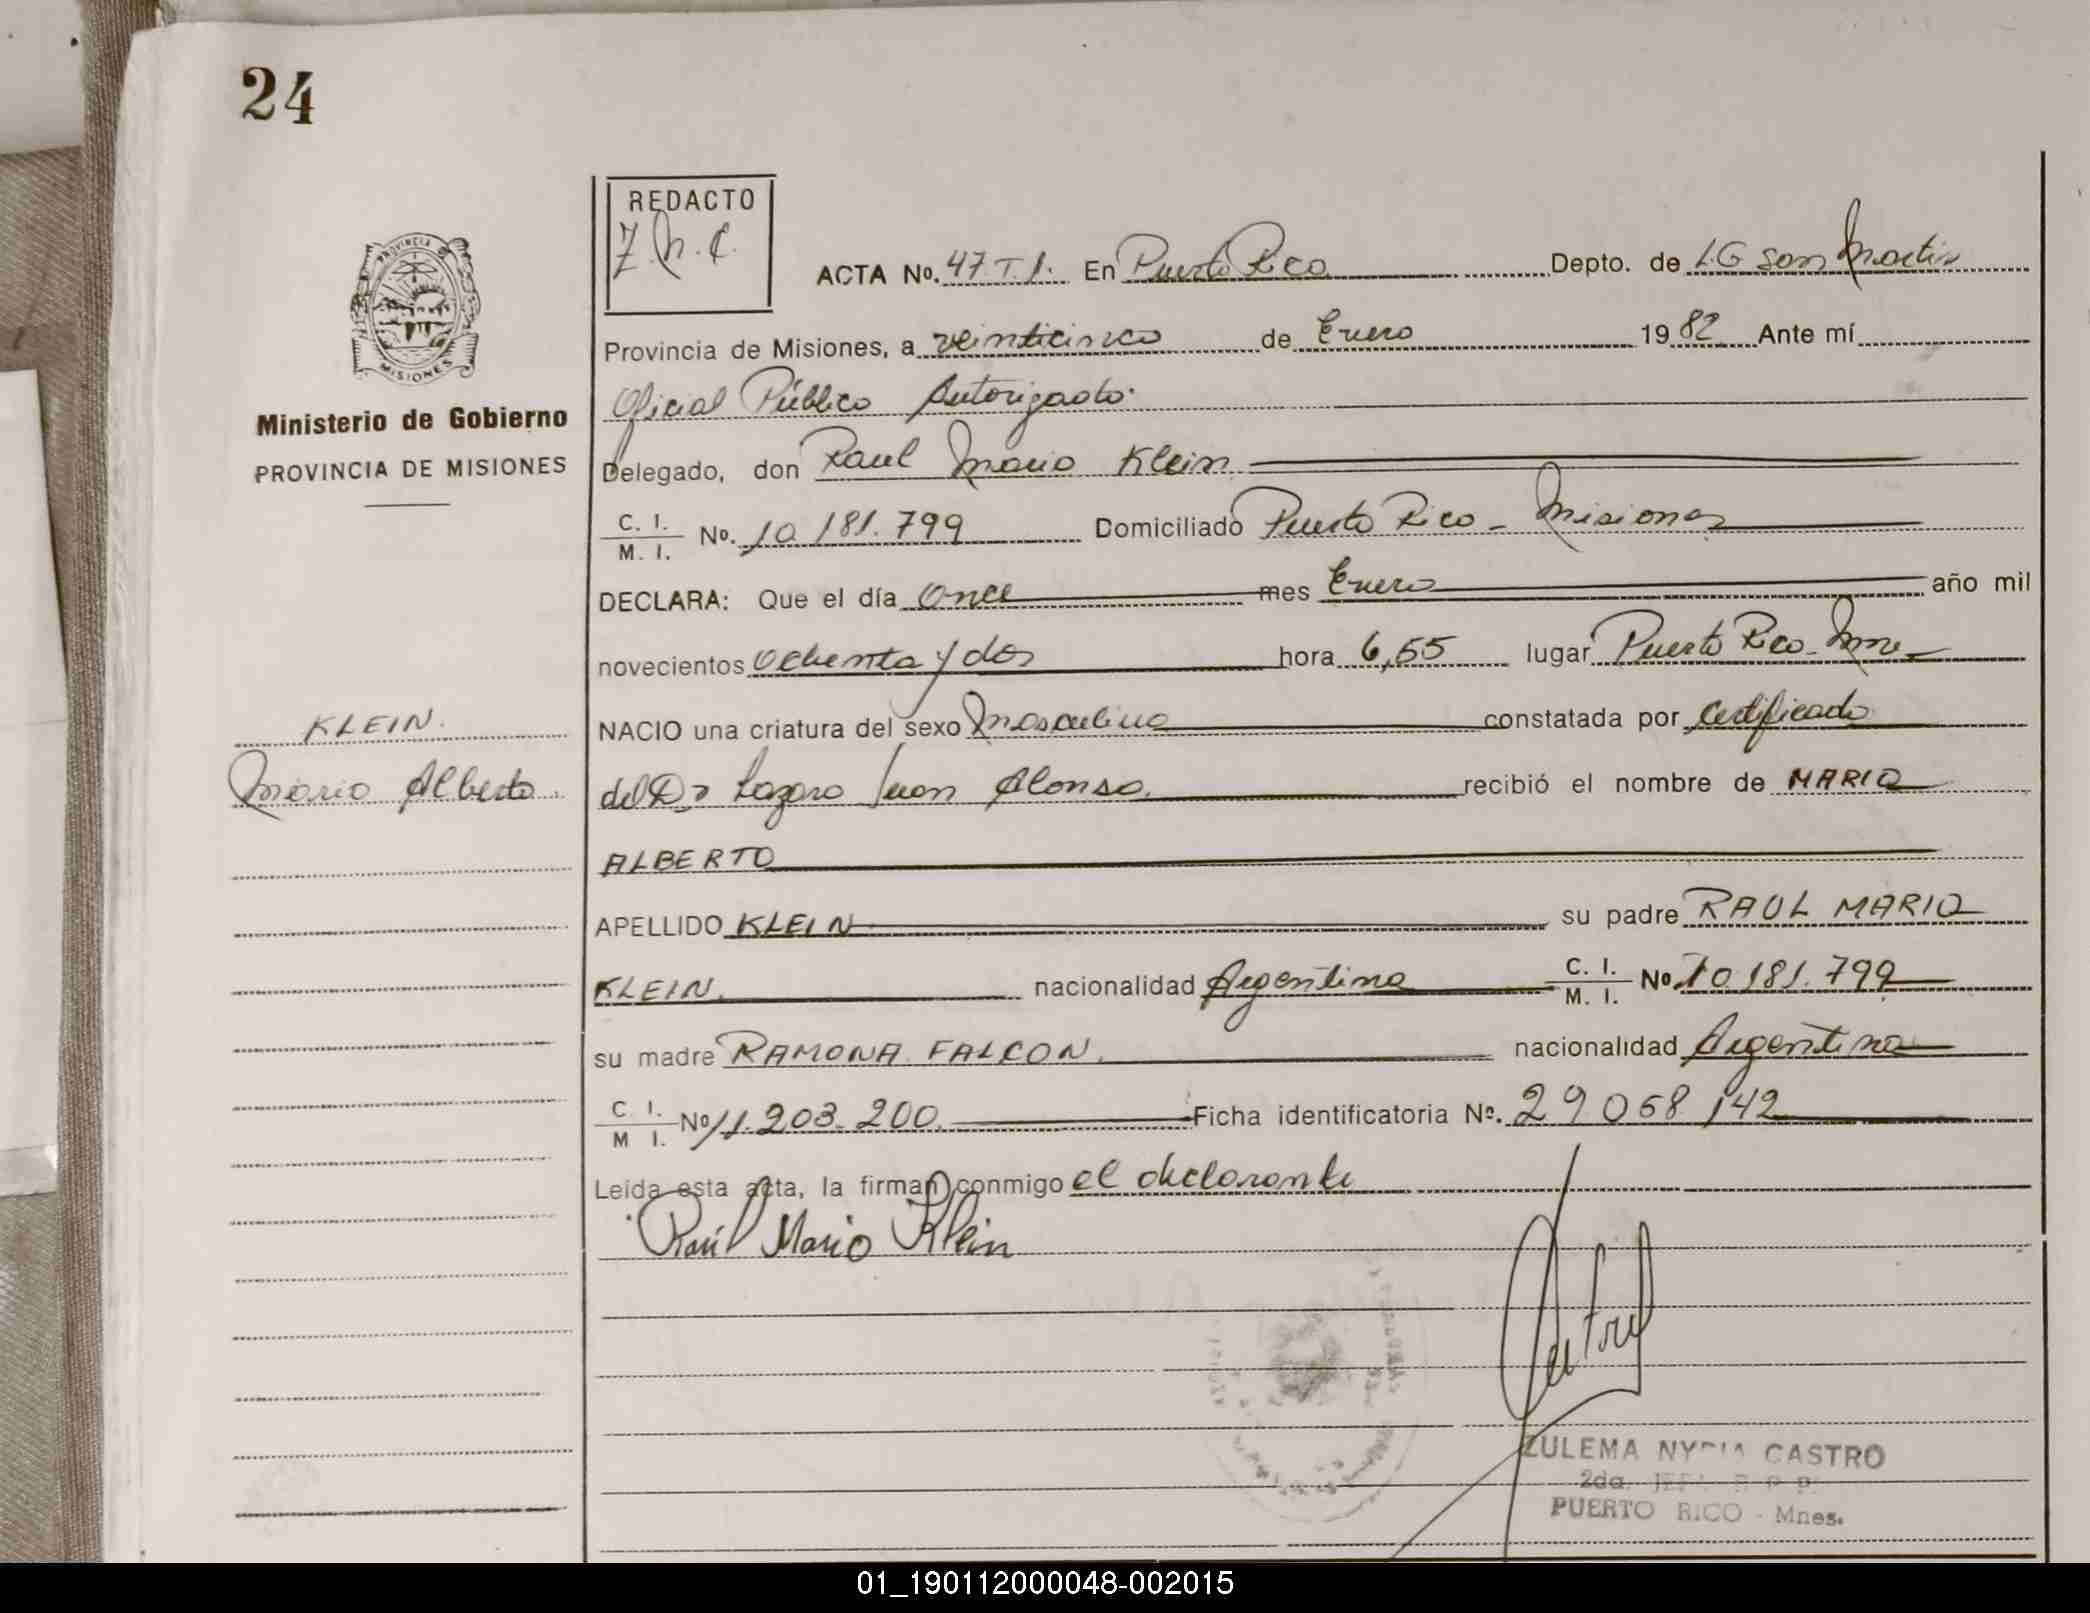 24
PROVINCIA
MISIONES
Ministerio de Gobierno
PROVINCIA DE MISIONES
KLEIN.
Mario Alberto.
REDACTO
Z.N.C.
ACTA No. 47.T.I. En Puerto Rico Depto. de L.G San Martin
Provincia de Misiones, a veinticinco de Enero 1982 Ante mí
Oficial Público Autorizado.
Delegado, don Raul Mario Klein
C. I. / M. I. No. 10.181.799 Domiciliado Puerto Rico - Misiones
DECLARA: Que el día once mes Enero año mil
novecientos ochenta y dos hora 6,55 lugar Puerto Rico - Mnes
NACIO una criatura del sexo Masculino constatada por certificado
del Dr Lazaro Juan Alonso. recibió el nombre de MARIO
ALBERTO
APELLIDO KLEIN su padre RAUL MARIO
KLEIN. nacionalidad Argentina C. I. / M. I. No. 10.181.799
su madre RAMONA FALCON. nacionalidad Argentina
C. I. / M. I. No 11.203.200. Ficha identificatoria Nº. 29 068 142
Leída esta acta, la firman conmigo el declarante
Raúl Mario Klein
ZULEMA NYDIA CASTRO
2da. JEFA R P P
PUERTO RICO - Mnes.
01_190112000048-002015